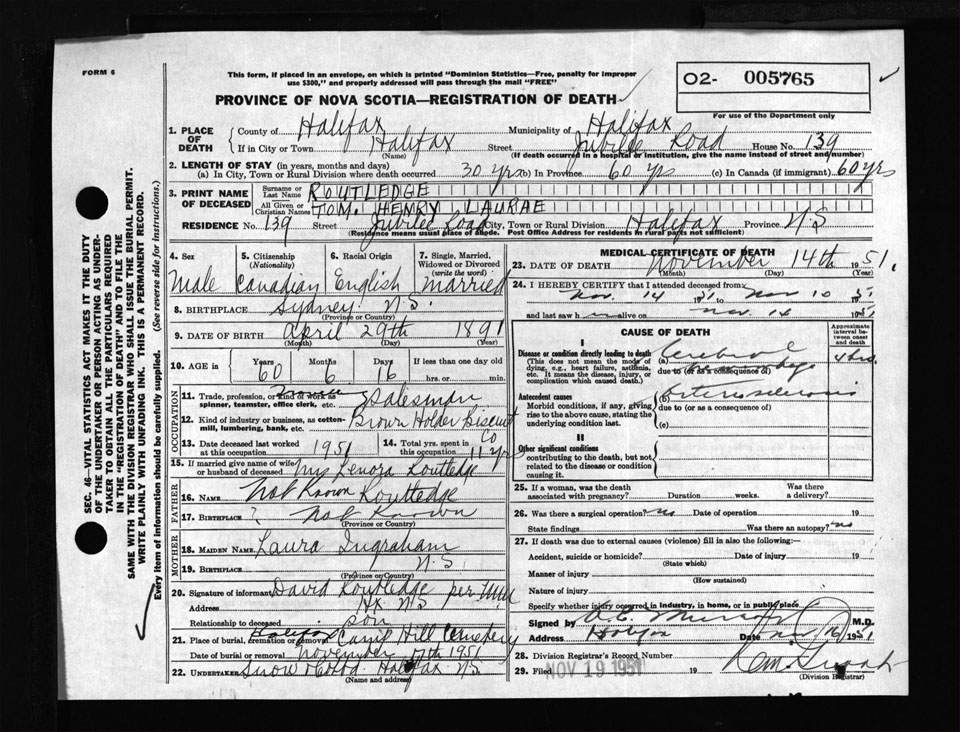 FORM 6
This form, if placed in an envelope, on which is printed "Dominion Statistics—Free, penalty for improper
use $300," and properly addressed will pass through the mail "FREE"
PROVINCE OF NOVA SCOTIA—REGISTRATION OF DEATH
O2- 005765
For use of the Department only
1. PLACE OF DEATH
County of Halifax Municipality of Halifax
If in City or Town Halifax Street Jubilee Road House No. 139
(Name) (If death occurred in a hospital or institution, give the name instead of street and number)
2. LENGTH OF STAY (in years, months and days)
(a) In City, Town or Rural Division where death occurred 30 yrs (b) In Province 60 yrs (c) In Canada (if immigrant) 60 yrs
3. PRINT NAME OF DECEASED
Surname or Last Name ROUTLEDGE
All Given or Christian Names TOM. HENRY LAURAE
RESIDENCE No. 139 Street Jubilee Road City, Town or Rural Division Halifax Province N.S
(Residence means usual place of abode. Post Office Address for residents in rural parts not sufficient)
4. Sex
5. Citizenship (Nationality)
6. Racial Origin
7. Single, Married, Widowed or Divorced (write the word)
Male Canadian English Married
8. BIRTHPLACE Sydney N.S.
(Province or Country)
9. DATE OF BIRTH April 29th 1891
(Month) (Day) (Year)
10. AGE in Years 60 Months 6 Days 16 If less than one day old
hrs. or min.
OCCUPATION
11. Trade, profession, or kind of work as spinner, teamster, office clerk, etc. Salesman
12. Kind of industry or business, as cotton-mill, lumbering, bank, etc. Brown Holder Biscuit Co
13. Date deceased last worked at this occupation 1951
14. Total yrs. spent in this occupation 11 yrs
15. If married give name of wife or husband of deceased Mrs Lenora Routledge
FATHER
16. NAME Not Known Routledge
17. BIRTHPLACE ? Not Known
(Province or Country)
MOTHER
18. MAIDEN NAME Laura Ingraham
19. BIRTHPLACE N.S
(Province or Country)
20. Signature of informant David Routledge per
Address Hx. N.S
Relationship to deceased son
21. Place of burial, cremation or removal Halifax Camp Hill Cemetery
Date of burial or removal November 17th 1951
22. UNDERTAKER Snow & Co Ltd. Halifax N.S.
(Name and address)
MEDICAL CERTIFICATE OF DEATH
23. DATE OF DEATH November 14th 1951.
(Month) (Day) (Year)
24. I HEREBY CERTIFY that I attended deceased from
Nov. 14 51 to Nov 10 1951
and last saw h m alive on Nov. 14 1951
CAUSE OF DEATH
Approximate interval between onset and death
I
Disease or condition directly leading to death (a) Cerebral 4 hrs.
(This does not mean the mode of dying, e.g., heart failure, asthenia, etc. It means the disease, injury, or complication which caused death.)
due to (or as a consequence of)
Antecedent causes (b) Arteriosclerosis
Morbid conditions, if any, giving rise to the above cause, stating the underlying condition last.
due to (or as a consequence of)
(c)
II
Other significant conditions
contributing to the death, but not related to the disease or condition causing it.
25. If a woman, was the death associated with pregnancy? Duration weeks. Was there a delivery?
26. Was there a surgical operation? no Date of operation 19
State findings Was there an autopsy? no
27. If death was due to external causes (violence) fill in also the following:—
Accident, suicide or homicide? Date of injury 19
(State which)
Manner of injury
(How sustained)
Nature of injury
Specify whether injury occurred in industry, in home, or in public place
Signed by M.D.
Address Halifax Date Nov 16 1951
28. Division Registrar's Record Number
29. Filed NOV 19 1951 19
(Division Registrar)
SEC. 46—VITAL STATISTICS ACT MAKES IT THE DUTY
OF THE UNDERTAKER OR PERSON ACTING AS UNDER-
TAKER TO OBTAIN ALL THE PARTICULARS REQUIRED
IN THE "REGISTRATION OF DEATH" AND TO FILE THE
SAME WITH THE DIVISION REGISTRAR WHO SHALL ISSUE THE BURIAL PERMIT.
WRITE PLAINLY WITH UNFADING INK. THIS IS A PERMANENT RECORD.
Every item of information should be carefully supplied. (See reverse side for instructions.)